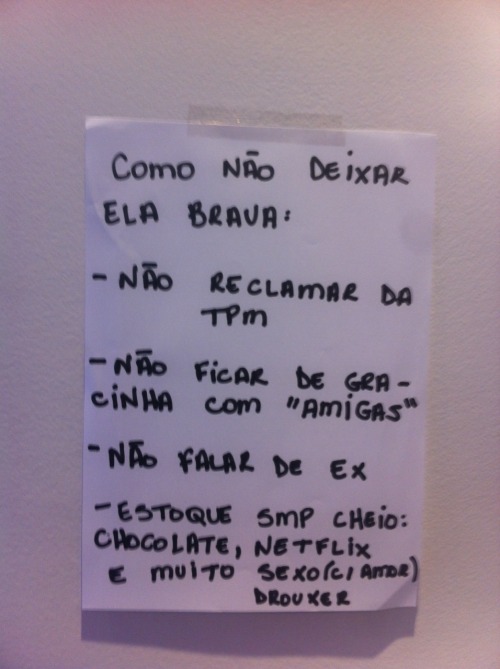 COMO NÃO DEIXAR
ELA BRAVA:
- NÃO RECLAMAR DA
TPM
- NÃO FICAR DE GRA-
CINHA COM "AMIGAS"
- NÃO FALAR DE EX
- ESTOQUE SMP CHEIO:
CHOCOLATE, NETFLIX
E MUITO SEXO(C/AMOR)
DROUXER